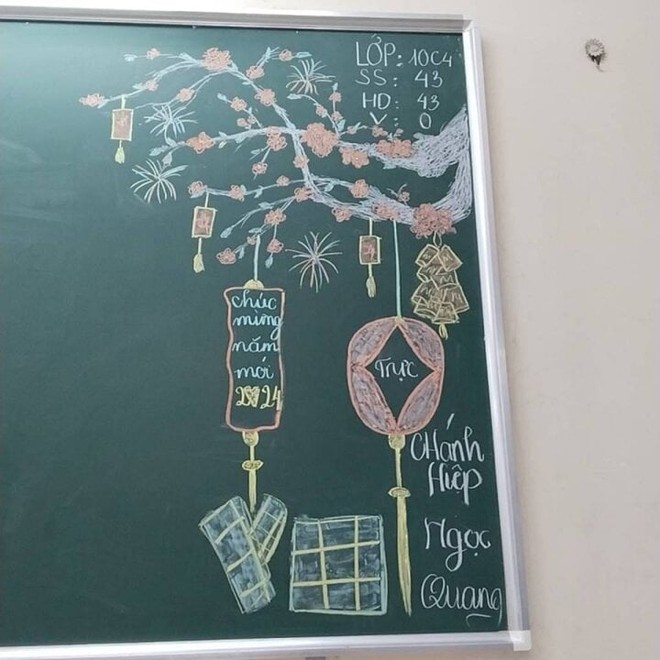 LỚP: 10C4
SS: 43
HD: 43
V: 0
chúc
mừng
năm
mới
2024
Trực
CHánh
Hiệp
Ngọc
Quang